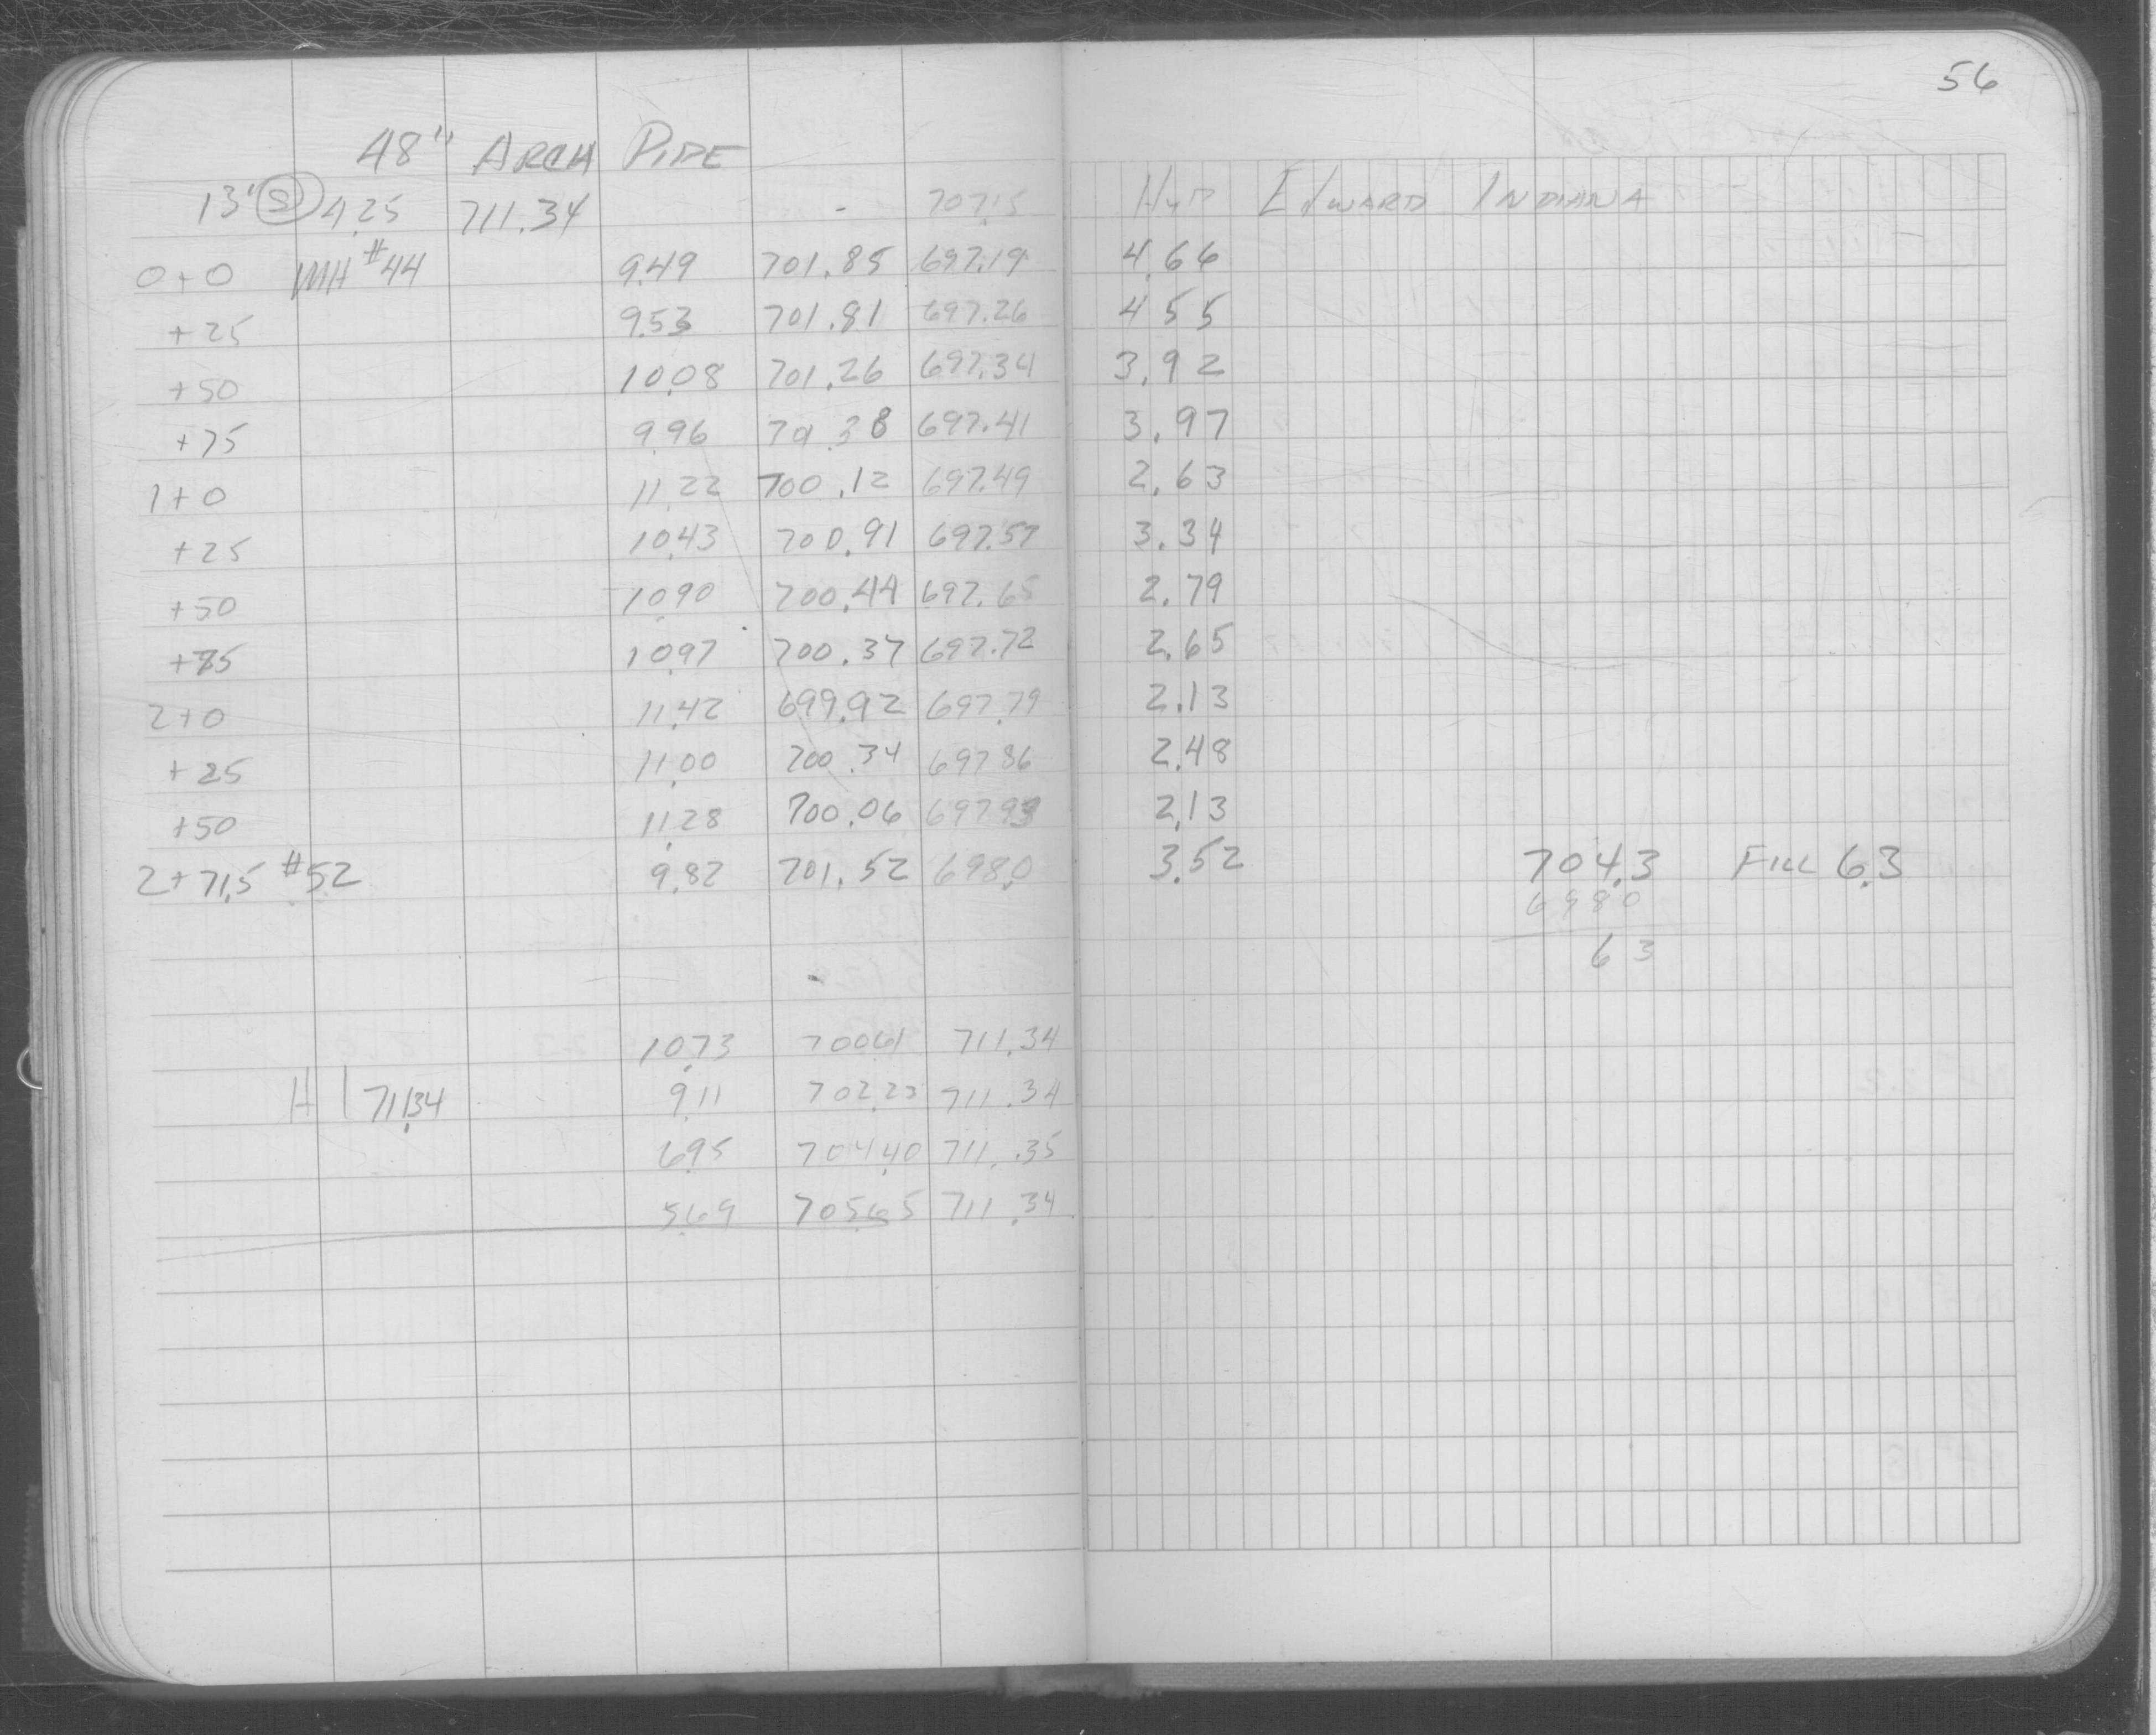 56
48" ARCH PIPE
13' S 4.25 711.34 - 707.15 HYD EDWARD INDIANA
0+0 MH #44 9.49 701.85 697.19 4.66
+25 9.53 701.81 697.26 4 55
+50 10.08 701.26 697.34 3.92
+75 9.96 701.38 697.41 3.97
1+0 11.22 700.12 697.49 2.63
+25 10.43 700.91 697.57 3.34
+50 10.90 700.44 697.65 2.79
+75 10.97 700.37 697.72 2.65
2+0 11.42 699.92 697.79 2.13
+25 11.00 700.34 697.86 2.48
+50 11.28 700.06 697.93 2.13
2+71.5 #52 9.82 701.52 698.0 3.52 704.3 FILL 6.3
698 0
6 3
10.73 700.61 711.34
H I 711.34 9.11 702.23 711.34
6.95 704.40 711.35
5.69 705.65 711.34